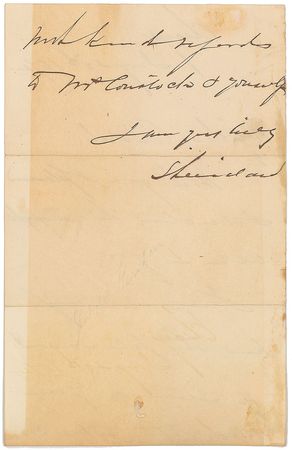 With kind regards
to Mrs Comstock & yourself
I am yrs truly
Sheridan